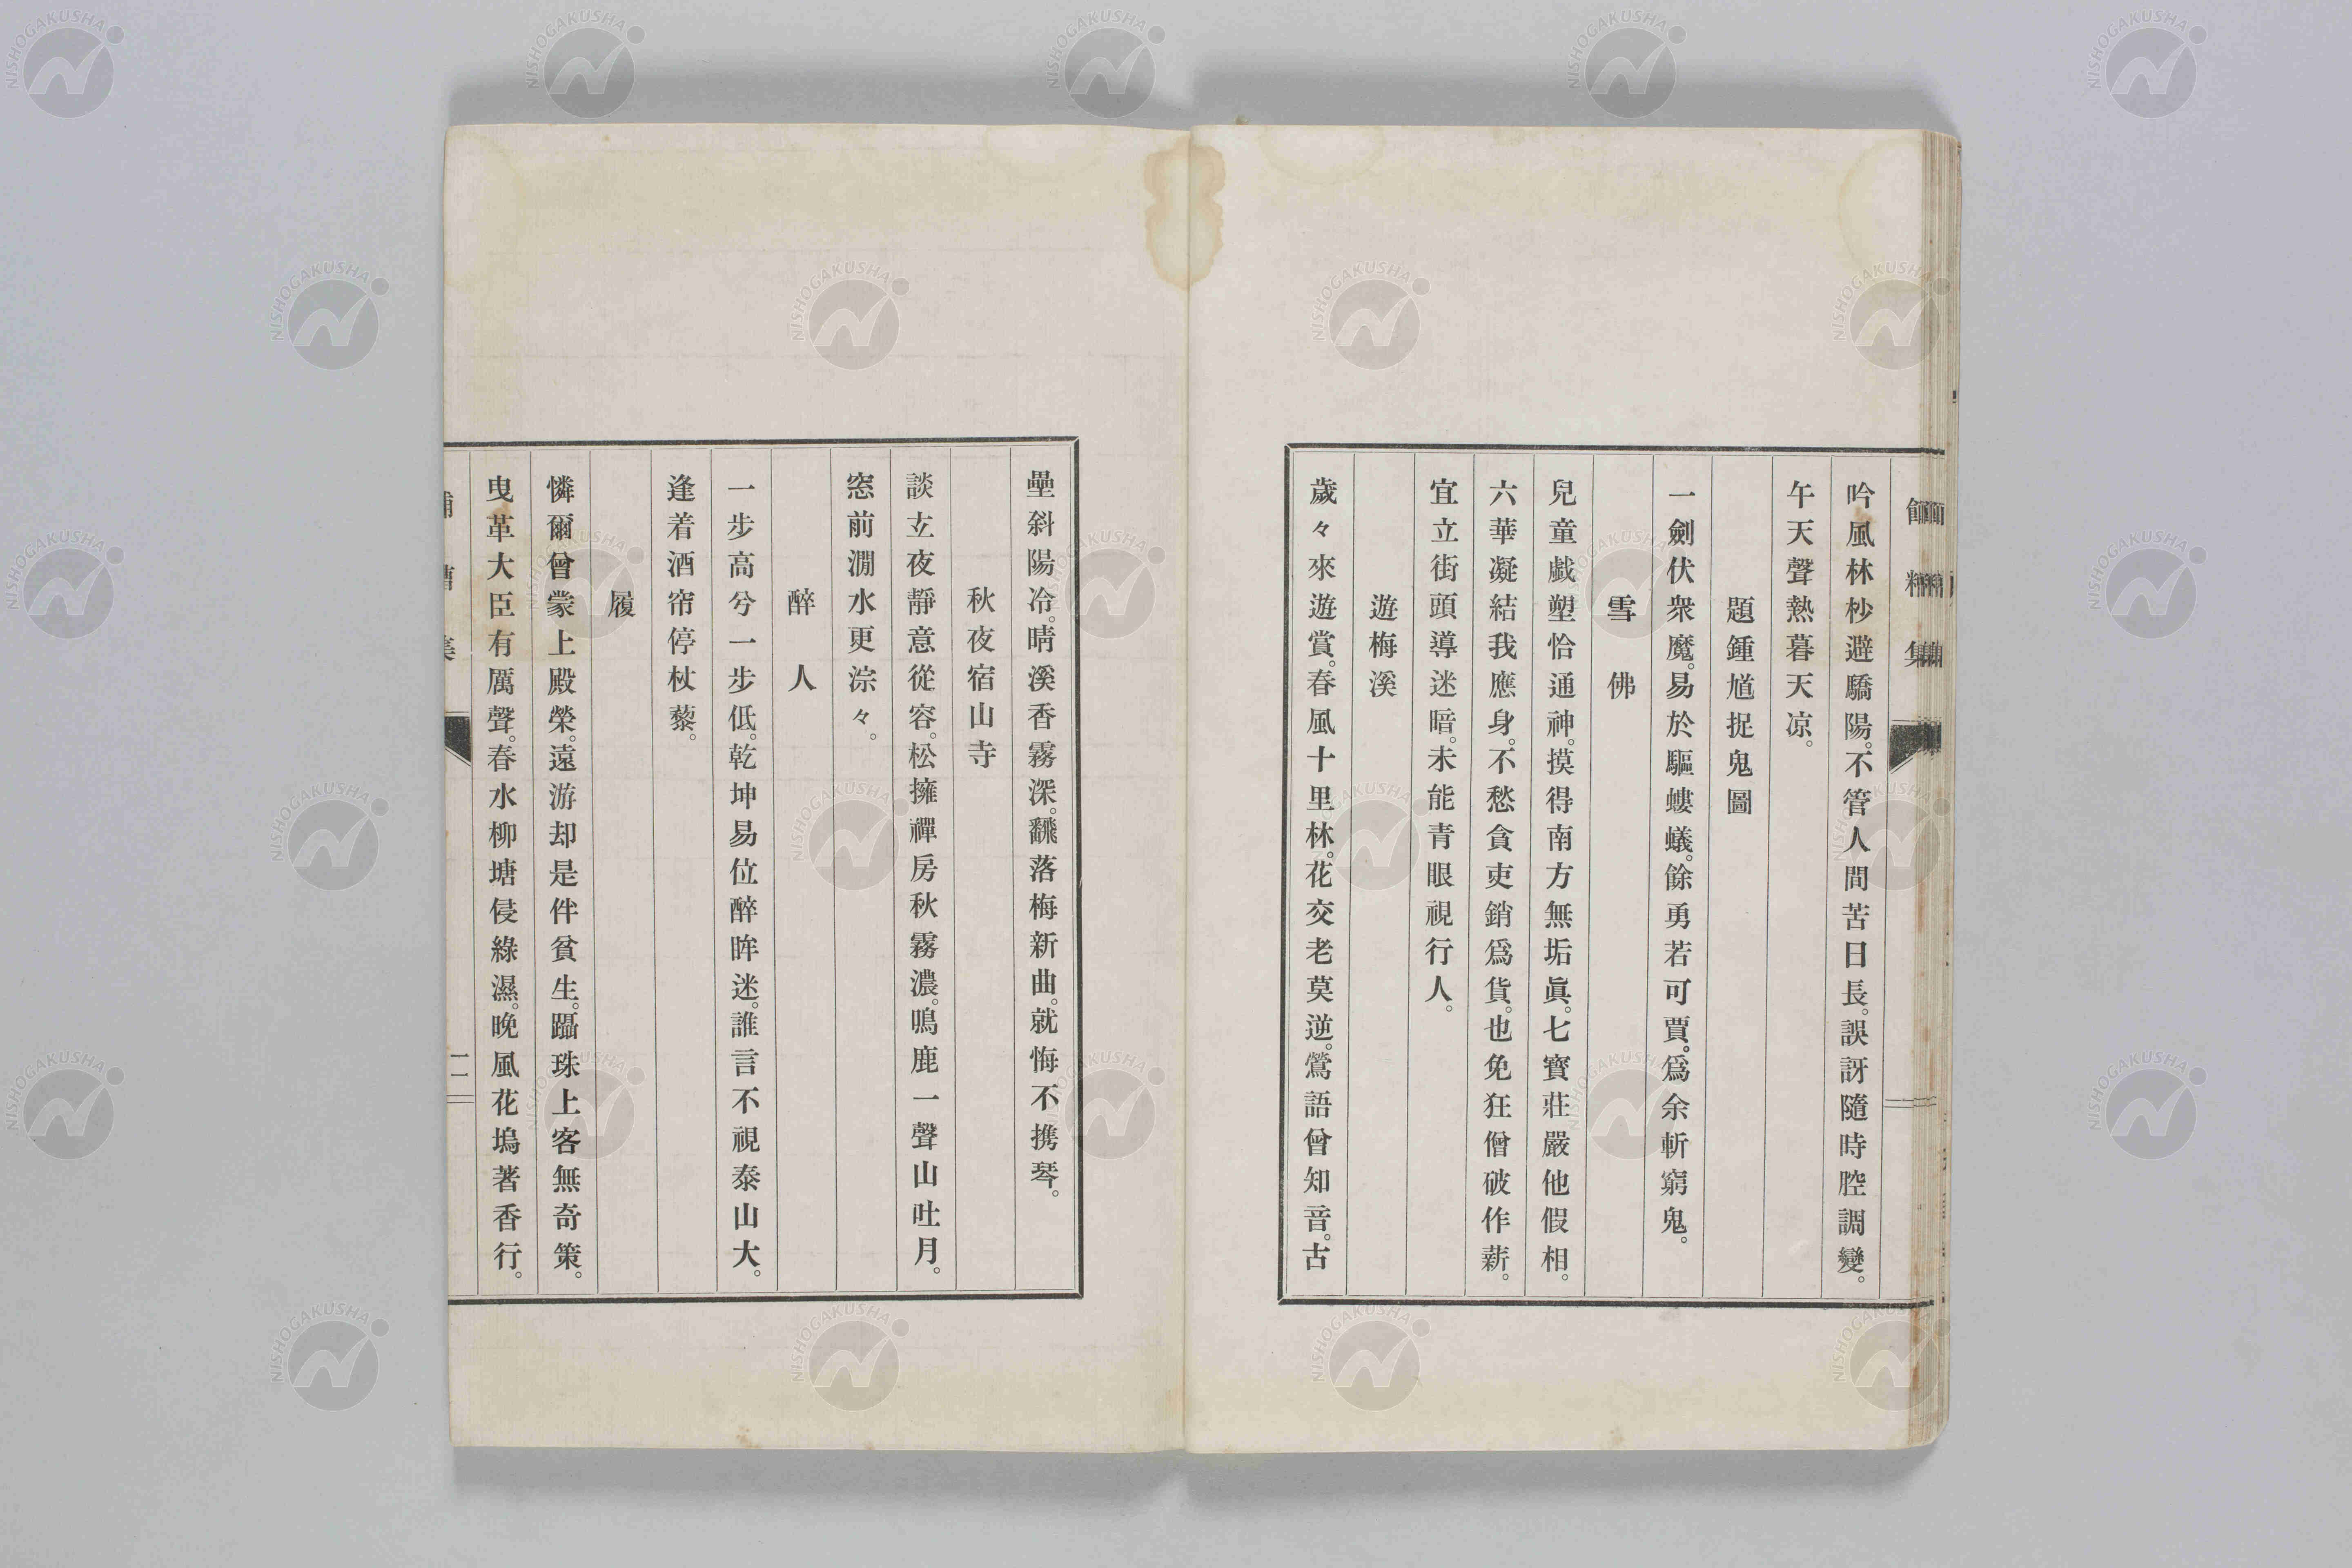 吟風林杪避驕陽。不管人間苦日長。誤訝隨時腔調變。
午天聲熱暮天凉。
題鍾馗捉鬼圖
一劍伏衆魔。易於驅螻蟻。餘勇若可賈。爲余斬窮鬼。
雪佛
兒童戱塑恰通神。摸得南方無垢眞。七寶莊嚴他假相。
六華凝結我應身。不愁貪吏銷爲貨。也免狂僧破作薪。
宜立街頭導迷暗。未能青眼視行人。
遊梅溪
歲々來遊賞。春風十里林。花交老莫逆。鶯語曾知音。古
壘斜陽冷。晴溪香霧深。飜落梅新曲。就悔不携琴。
秋夜宿山寺
談玄夜靜意從容。松擁禪房秋霧濃。鳴鹿一聲山吐月。
窓前澗水更淙々。
醉人
一步高兮一步低。乾坤易位醉眸迷。誰言不視泰山大。
逢着酒帘停杖藜。
履
憐爾曾蒙上殿榮。遠游却是伴貧生。躡珠上客無奇策。
曳革大臣有厲聲。春水柳塘侵綠濕。晩風花塢著香行。
集
二
NISHOGAKUSHA